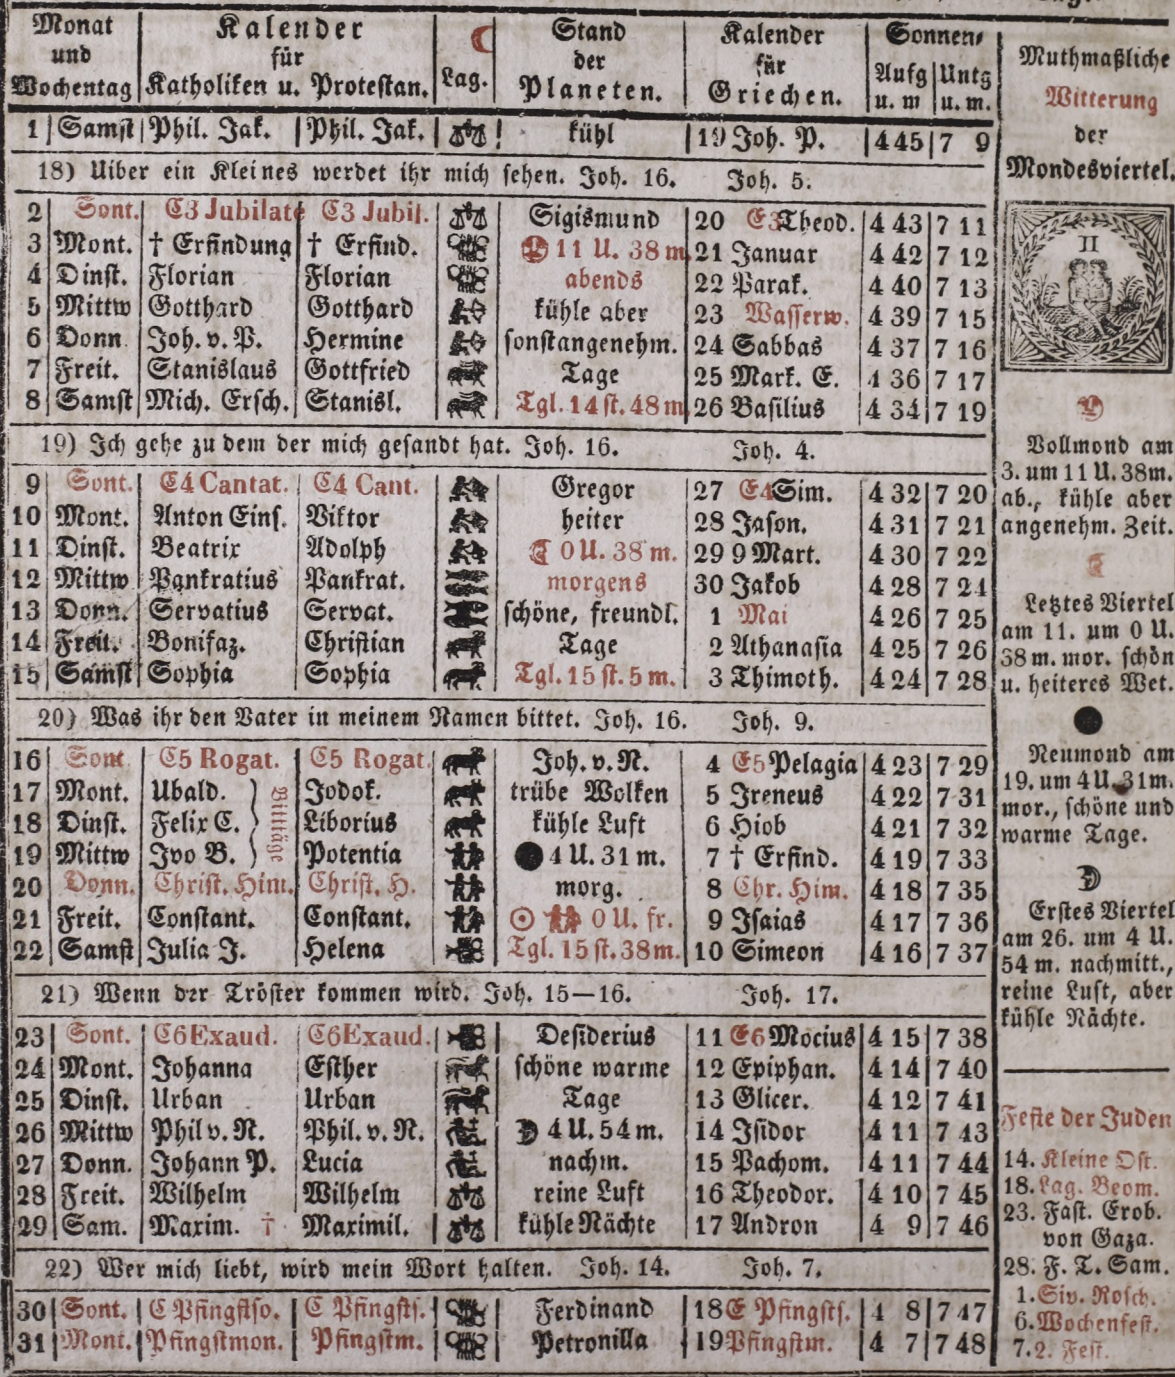 Monat und Wochentag | Kalender für Katholiken u. Protestan. | ☾ Lag. | Stand der Planeten. | Kalender für Griechen. | Sonnen= Aufg u. m | Untg u. m.
1 Samst Phil. Jak. Phil. Jak. kühl 19 Joh. P. 4 45 7 9
18) Uiber ein Kleines werdet ihr mich sehen. Joh. 16. Joh. 5.
2 Sont. C3 Jubilate C3 Jubil. Sigismund 20 E3 Theod. 4 43 7 11
3 Mont. † Erfindung † Erfind. 11 U. 38 m. 21 Januar 4 42 7 12
4 Dinst. Florian Florian abends 22 Parak. 4 40 7 13
5 Mittw Gotthard Gotthard kühle aber 23 Wasserw. 4 39 7 15
6 Donn. Joh. v. P. Hermine sonstangenehm. 24 Sabbas 4 37 7 16
7 Freit. Stanislaus Gottfried Tage 25 Mark. E. 4 36 7 17
8 Samst Mich. Ersch. Stanisl. Tgl. 14 st. 48 m. 26 Basilius 4 34 7 19
19) Ich gehe zu dem der mich gesandt hat. Joh. 16. Joh. 4.
9 Sont. C4 Cantat. C4 Cant. Gregor 27 E4 Sim. 4 32 7 20
10 Mont. Anton Eins. Viktor heiter 28 Jason. 4 31 7 21
11 Dinst. Beatrix Adolph ☾ 0 U. 38 m. 29 9 Mart. 4 30 7 22
12 Mittw Pankratius Pankrat. morgens 30 Jakob 4 28 7 24
13 Donn. Servatius Servat. schöne, freundl. 1 Mai 4 26 7 25
14 Freit. Bonifaz. Christian Tage 2 Athanasia 4 25 7 26
15 Samst Sophia Sophia Tgl. 15 st. 5 m. 3 Thimoth. 4 24 7 28
20) Was ihr den Vater in meinem Namen bittet. Joh. 16. Joh. 9.
16 Sont C5 Rogat. C5 Rogat. Joh. v. N. 4 E5 Pelagia 4 23 7 29
17 Mont. Ubald. Jodok. trübe Wolken 5 Ireneus 4 22 7 31
Bittäge
18 Dinst. Felix C. Liborius kühle Luft 6 Hiob 4 21 7 32
19 Mittw Ivo B. Potentia ● 4 U. 31 m. 7 † Erfind. 4 19 7 33
20 Donn. Christ. Him. Christ. H. morg. 8 Chr. Him. 4 18 7 35
21 Freit. Constant. Constant. ☉ 0 U. fr. 9 Isaias 4 17 7 36
22 Samst Julia J. Helena Tgl. 15 st. 38 m. 10 Simeon 4 16 7 37
21) Wenn der Tröster kommen wird. Joh. 15—16. Joh. 17.
23 Sont. C6 Exaud. C6 Exaud. Desiderius 11 E6 Mocius 4 15 7 38
24 Mont. Johanna Esther schöne warme 12 Epiphan. 4 14 7 40
25 Dinst. Urban Urban Tage 13 Glicer. 4 12 7 41
26 Mittw Phil v. N. Phil. v. N. ☽ 4 U. 54 m. 14 Isidor 4 11 7 43
27 Donn. Johann P. Lucia nachm. 15 Pachom. 4 11 7 44
28 Freit. Wilhelm Wilhelm reine Luft 16 Theodor. 4 10 7 45
29 Sam. Maxim. † Maximil. kühle Nächte 17 Andron 4 9 7 46
22) Wer mich liebt, wird mein Wort halten. Joh. 14. Joh. 7.
30 Sont. C Pfingstso. C Pfingsts. Ferdinand 18 E Pfingsts. 4 8 7 47
31 Mont. Pfingstmon. Pfingstm. Petronilla 19 Pfingstm. 4 7 7 48
Muthmaßliche
Witterung
der
Mondesviertel.
II
Vollmond am
3. um 11 U. 38m.
ab., kühle aber
angenehm. Zeit.
Letztes Viertel
am 11. um 0 U.
38 m. mor. schön
u. heiteres Wet.
Neumond am
19. um 4 U. 31m.
mor., schöne und
warme Tage.
Erstes Viertel
am 26. um 4 U.
54 m. nachmitt.,
reine Luft, aber
kühle Nächte.
Feste der Juden
14. Kleine Ost.
18. Lag. Beom.
23. Fast. Erob.
von Gaza.
28. F. T. Sam.
1. Siv. Rosch.
6. Wochenfest.
7. 2. Fest.